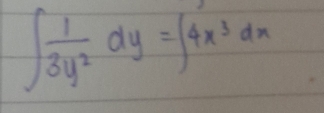 ∫ 1/(3y²) dy = ∫ 4x³ dx